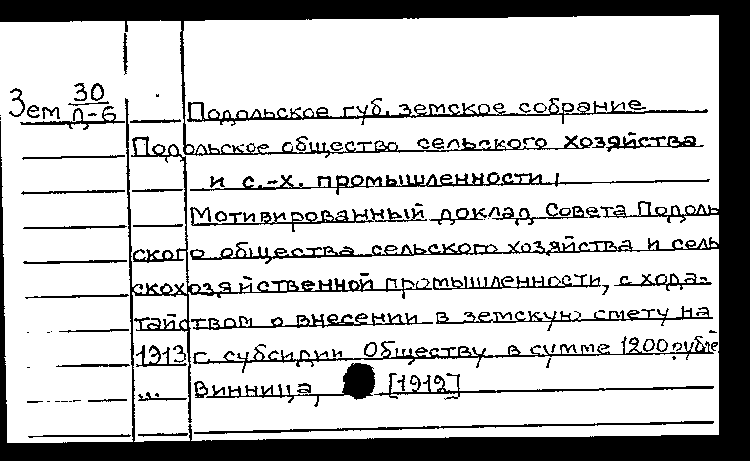 Зем 30
Д-6
Подольское губ. земское собрание
Подольское общество сельского хозяйства
и с.-х. промышленности.
Мотивированный доклад Совета Подоль
ского общества сельского хозяйства и сель
скохозяйственной промышленности, с хода-
тайством о внесении в земскую смету на
1913 г. субсидии Обществу в сумме 1200 рубле
... Винница, [1912]